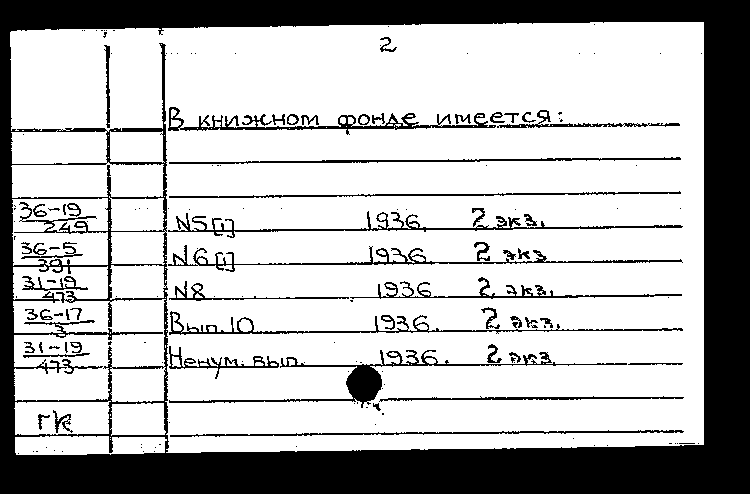 2
В книжном фонде имеется:
36-19/249 N5[1] 1936. 2 экз.
36-5/391 N6[1] 1936. 2 экз
31-19/473 N8 1936 2 экз.
36-17/3 Вып. 10 1936. 2 экз.
31-19/473 Ненум. вып. 1936. 2 экз.
ГК